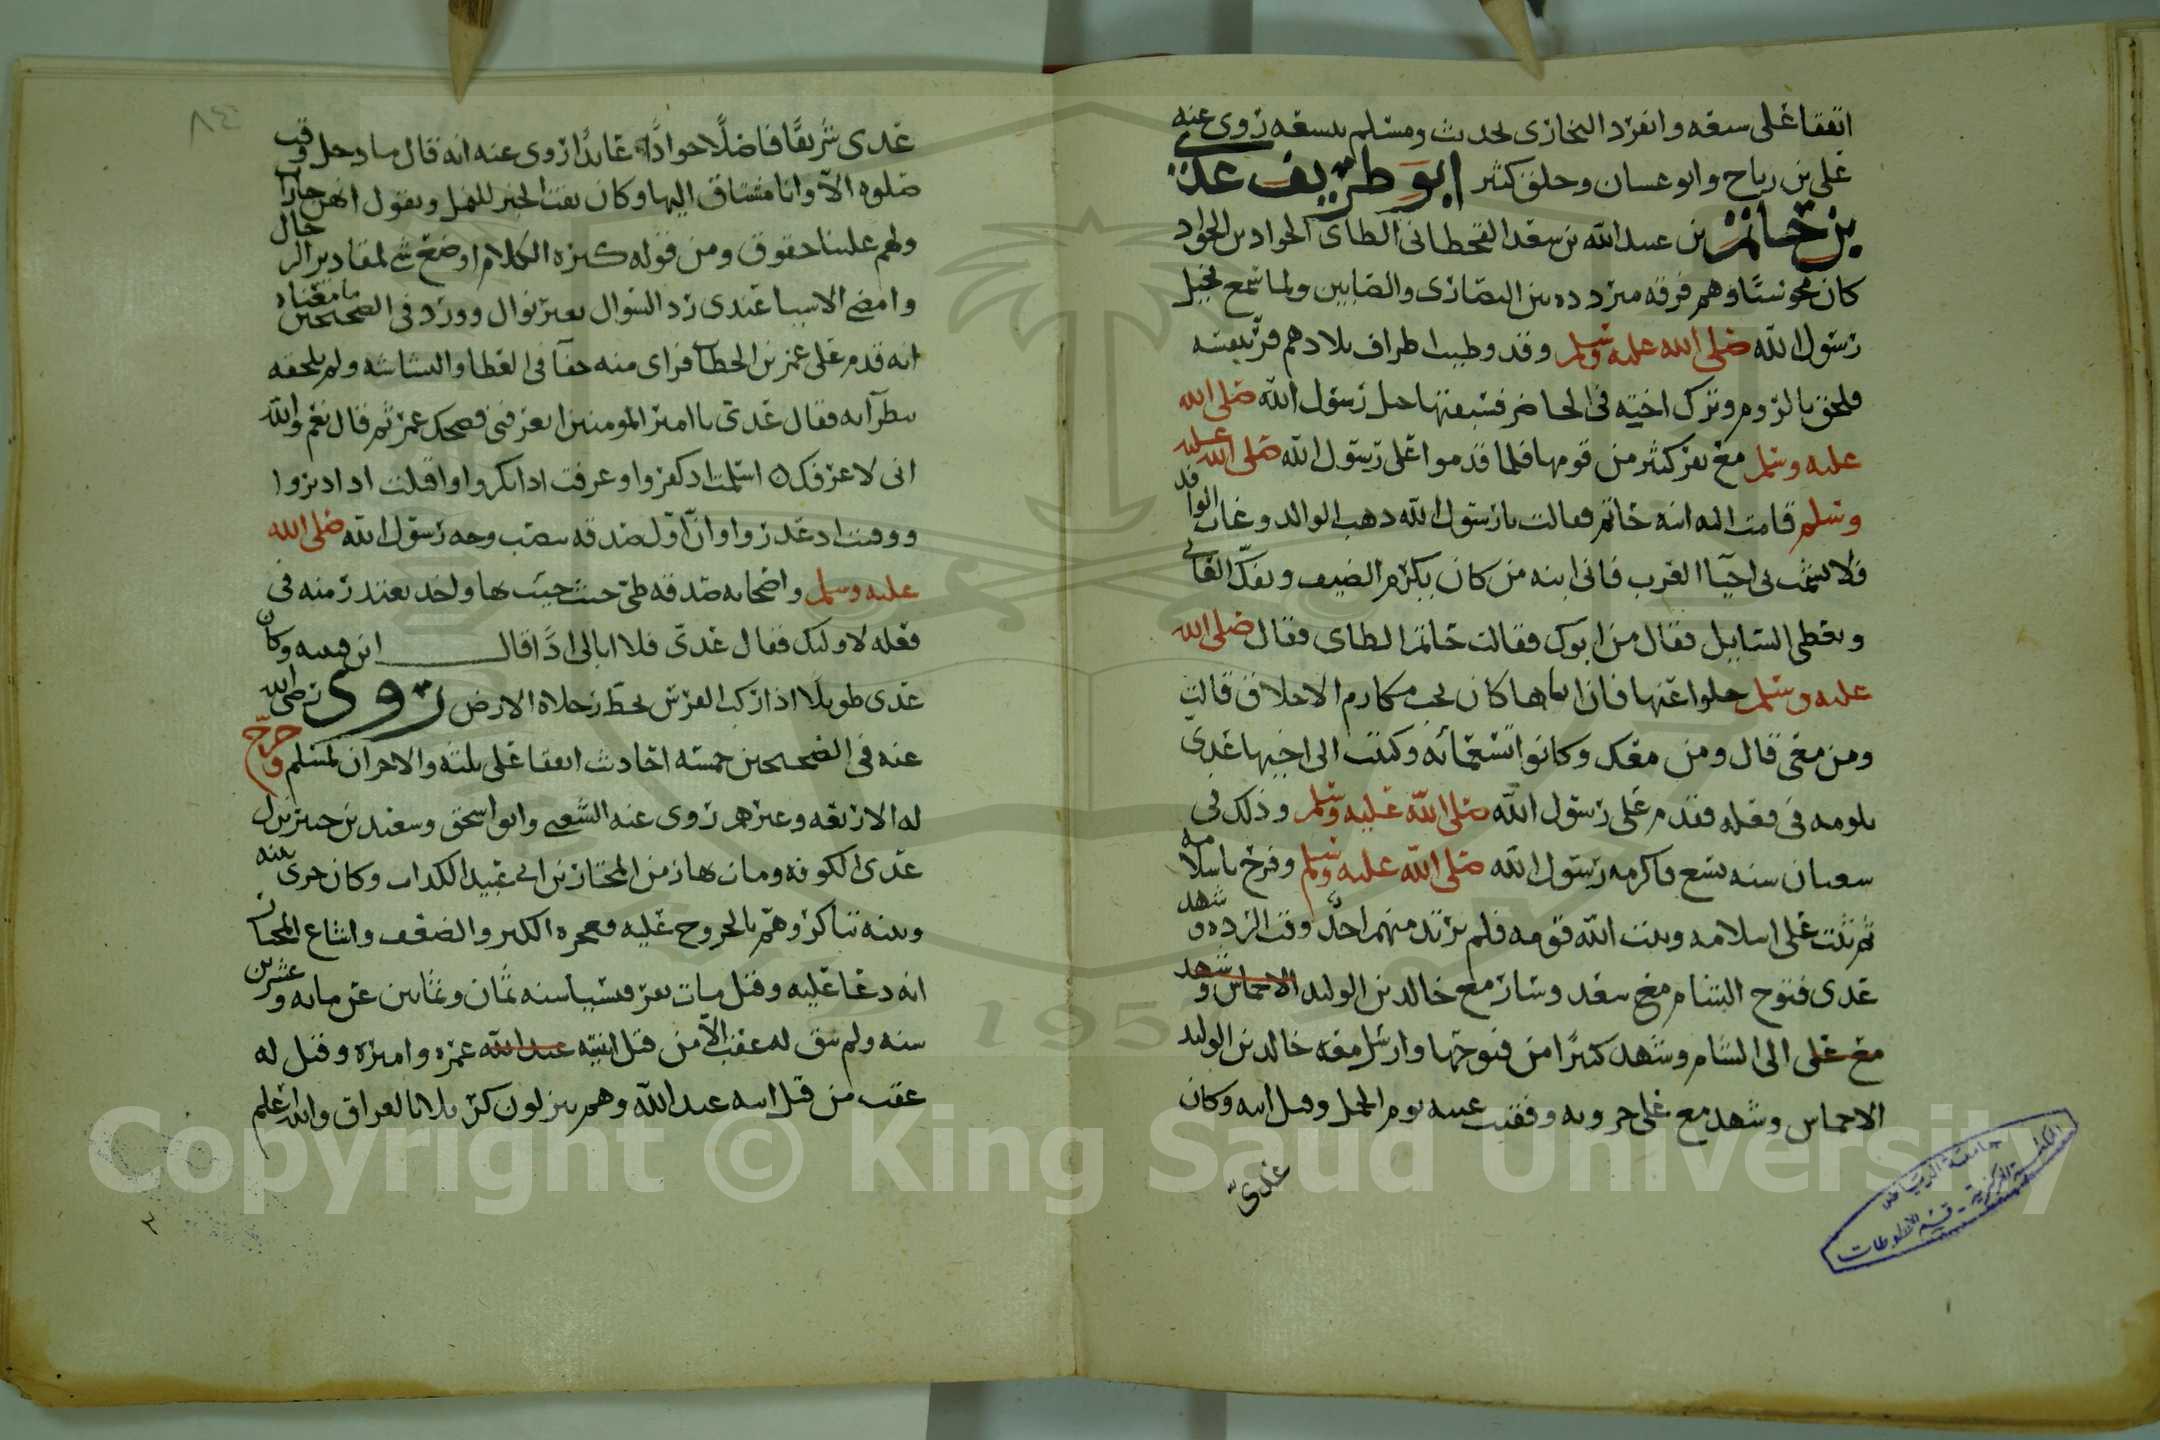 اتفقا على سبعه وانفرد البخارى بحديث ومسلم بتسعه روى عنه
على بن رباح وابو عسان وخلق كثير ابو طريف عدى
بن حاتم بن عبد الله بن سعد القحطانى الطاى الجواد بن الجواد
كان مجوسيا وهم فرقه متردده بين النصارى والصابين ولما سمع بخيل
رسول الله صلى الله عليه وسلم وقد وطيت اطراف بلادهم فر بنفسه
فلحق بالروم وترك اخته فى الحاضر فسبقتها خيل رسول الله صلى الله
عليه وسلم مع نفر كثير من قومها فلما قدموا على رسول الله صلى الله عليه
وسلم قامت اليه ابنة حاتم فقالت يا رسول الله ذهب الوالد وغاب الوافد
فلا تشمت بى احيا العرب فانى ابنه من كان يكرم الضيف ويفك العانى
ويعطى السايل فقال من ابوك فقالت حاتم الطاى فقال صلى الله
عليه وسلم خلوا عنها فان اباها كان يحب مكارم الاخلاق قالت
ومن معى قال ومن معك وكانوا تسعمائه وكتبت الى اخيها عدى
تلومه فى فعله فقدم على رسول الله صلى الله عليه وسلم وذلك فى
شعبان سنه تسع فاكرمه رسول الله صلى الله عليه وسلم وفرح باسلامه
ثم ثبت على اسلامه وثبت الله قومه فلم يرتد منهم احد وقت الرده وشهد
عدى فتوح الشام مع سعد وسار مع خالد بن الوليد الاخماس وشهد
مع على الى الشام وشهد كثيرا من فتوحها وارسل معه خالد بن الوليد
الاخماس وشهد مع على حروبه وفقئت عينه يوم الجمل وقتل ابنه وكان
عدى
٨٤
عدى شريفا فاضلا جوادا عابدا روى عنه انه قال ما دخل وقت
صلوه الا وانا مشتاق اليها وكان يفت الخبز للنمل ويقول انهن جارات
ولهم علينا حقوق ومن قوله كثره الكلام اوضع شى لمقادير الرجال
وامض الاشيا عندى رد السوال بغير نوال وورد فى الصحيحين ما معناه
انه قدم على عمر بن الخطاب فراى منه جفآ فى العطا والبشاشه ولم يلحقه
بنظرآيه فقال عدى يا امير المومنين اتعرفنى فضحك عمر ثم قال نعم والله
انى لاعرفك اسلمت اذ كفروا وعرفت اذ انكروا واقبلت اذ ادبروا
ووفيت اذ غدروا وان اول صدقه بيضت وجه رسول الله صلى الله
عليه وسلم واصحابه صدقه طى حيث جيت بها واخذ يعتذر منه فى
فعله لاولئك فقال عدى فلا ابالى اذا قال ابن قتيبه وكان
عدى طويلا اذا ركب الفرس تخط رجلاه الارض روى رضى الله
عنه فى الصحيحين خمسه احاديث اتفقا على ثلثه والاخران لمسلم وخرج
له الاربعه وغيرهم روى عنه الشعبى وابو اسحق وسعيد بن جبير نزل
عدى الكوفه ومات بها زمن المختار بن ابى عبيد الكذاب وكان جرى بينه
وبينه تناكر وهم بالخروج عليه فعجزه الكبر والضعف واشاع المختار
انه دعا عليه وقيل مات بقرقيسيا سنه ثمان وثمانين عن مايه وعشرين
سنه ولم يبق له عقب الا من قبل ابنتيه عبد الله عمره واميره وقيل له
عقب من قبل ابنه عبد الله وهم ينزلون كربلا بالعراق والله اعلم
جامعة الرياض
المكتبة المركزية - قسم المخطوطات
Copyright © King Saud University
1957